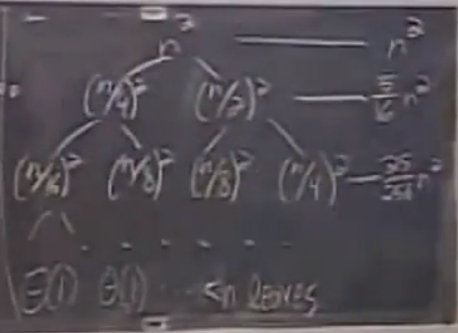 n² n²
(n/4)² (n/2)² 5/16 n²
(n/16)² (n/8)² (n/8)² (n/4)² 25/256 n²
Θ(1) Θ(1) ... <n leaves